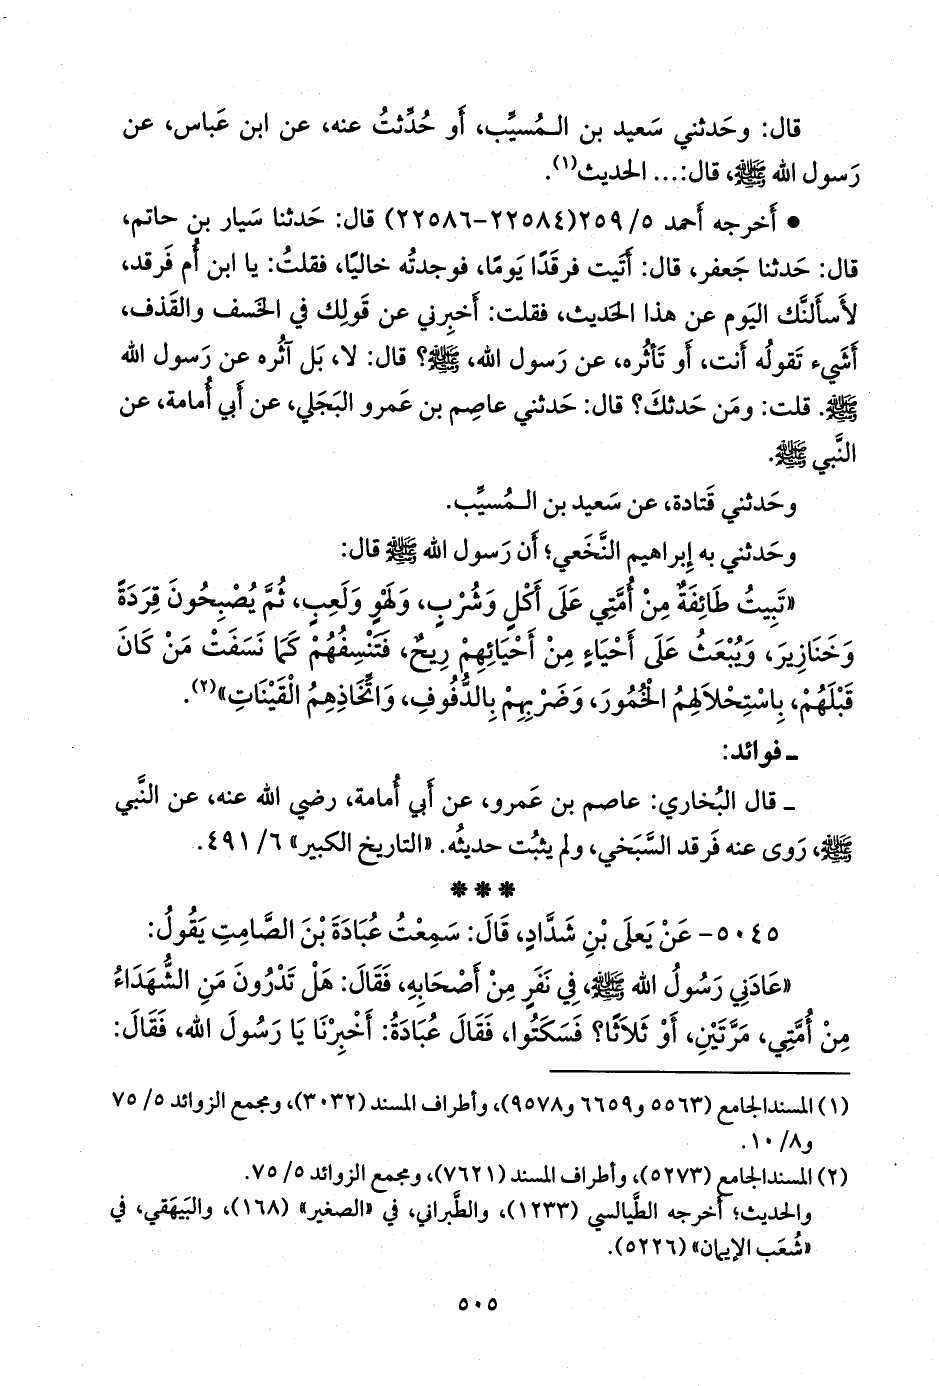 قال: وحَدثني سَعيد بن الـمُسيِّب، أَو حُدِّثتُ عنه، عن ابن عَباس، عن
رَسول الله ﷺ، قال:... الحديث(١).
• أَخرجه أَحمد ٥/ ٢٥٩(٢٢٥٨٤-٢٢٥٨٦) قال: حَدثنا سَيار بن حاتم،
قال: حَدثنا جَعفر، قال: أَتَيت فرقَدًا يَومًا، فوجدتُه خاليًا، فقلتُ: يا ابن أُم فَرقد،
لأَسأَلنَّك اليَوم عن هذا الحَديث، فقلت: أَخبِرني عن قَولِك في الخَسف والقَذف،
أَشَيء تَقولُه أَنت، أَو تَأثُره، عن رَسول الله، ﷺ؟ قال: لا، بَل آثُره عن رَسول الله
ﷺ. قلت: ومَن حَدثكَ؟ قال: حَدثني عاصِم بن عَمرو البَجَلي، عن أَبي أُمامة، عن
النَّبي ﷺ.
وحَدثني قَتادة، عن سَعيد بن الـمُسيِّب.
وحَدثني به إِبراهيم النَّخَعي؛ أَن رَسول الله ﷺ قال:
«تَبِيتُ طَائِفَةٌ مِنْ أُمَّتِي عَلَى أَكْلٍ وَشُرْبٍ، وَلَهْوٍ وَلَعِبٍ، ثُمَّ يُصْبِحُونَ قِرَدَةً
وَخَنَازِيرَ، وَيُبْعَثُ عَلَى أَحْيَاءٍ مِنْ أَحْيَائِهِمْ رِيحٌ، فَتَنْسِفُهُمْ كَمَا نَسَفَتْ مَنْ كَانَ
قَبْلَهُمْ، بِاسْتِحْلاَلِهِمُ الْخُمُورَ، وَضَرْبِهِمْ بِالدُّفُوفِ، وَاتِّخَاذِهِمُ الْقَيْنَاتِ»(٢).
ـ فوائد:
ـ قال البُخاري: عاصم بن عَمرو، عن أَبي أُمامة، رضي الله عنه، عن النَّبي
ﷺ، رَوى عنه فَرقد السَّبَخي، ولم يثبُت حديثُه. «التاريخ الكبير» ٦/ ٤٩١.
***
٥٠٤٥- عَنْ يَعلَى بْنِ شَدَّادٍ، قَالَ: سَمِعْتُ عُبَادَةَ بْنَ الصَّامِتِ يَقُولُ:
«عَادَنِي رَسُولُ الله ﷺ، فِي نَفَرٍ مِنْ أَصْحَابِهِ، فَقَالَ: هَلْ تَدْرُونَ مَنِ الشُّهَدَاءُ
مِنْ أُمَّتِي، مَرَّتَيْنِ، أَوْ ثَلاَثًا؟ فَسَكَتُوا، فَقَالَ عُبَادَةُ: أَخْبِرْنَا يَا رَسُولَ الله، فَقَالَ:
(١) المسندالجامع (٥٥٦٣ و٦٦٥٩ و٩٥٧٨)، وأطراف المسند (٣٠٣٢)، ومجمع الزوائد ٥/ ٧٥
و٨/ ١٠.
(٢) المسندالجامع (٥٢٧٣)، وأطراف المسند (٧٦٢١)، ومجمع الزوائد ٥/ ٧٥.
والحديث؛ أَخرجه الطَّيالسي (١٢٣٣)، والطَّبراني، في «الصغير» (١٦٨)، والبَيهَقي، في
«شُعَب الإيمان» (٥٢٢٦).
٥٠٥